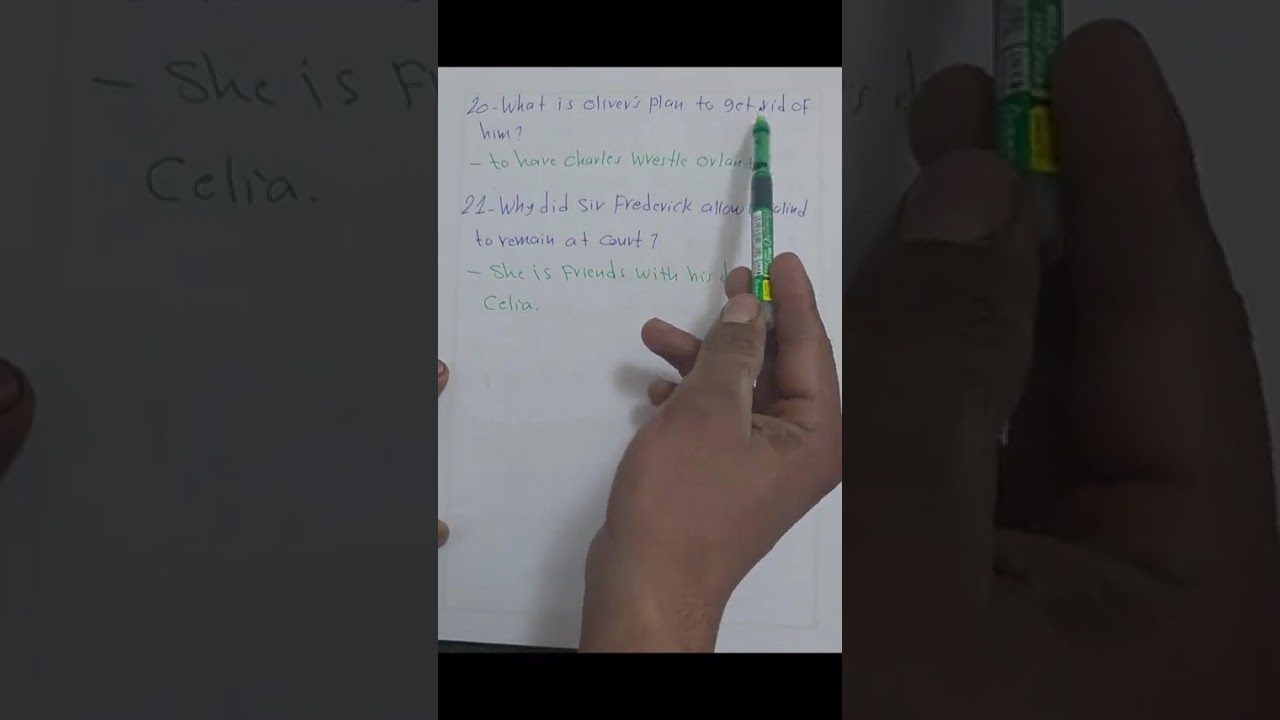 20-What is oliver's plan to get rid of
him?
- to have charles wrestle orlan
21-Why did sir Frederick allow alind
to remain at court?
- She is Friends with his d
Celia.